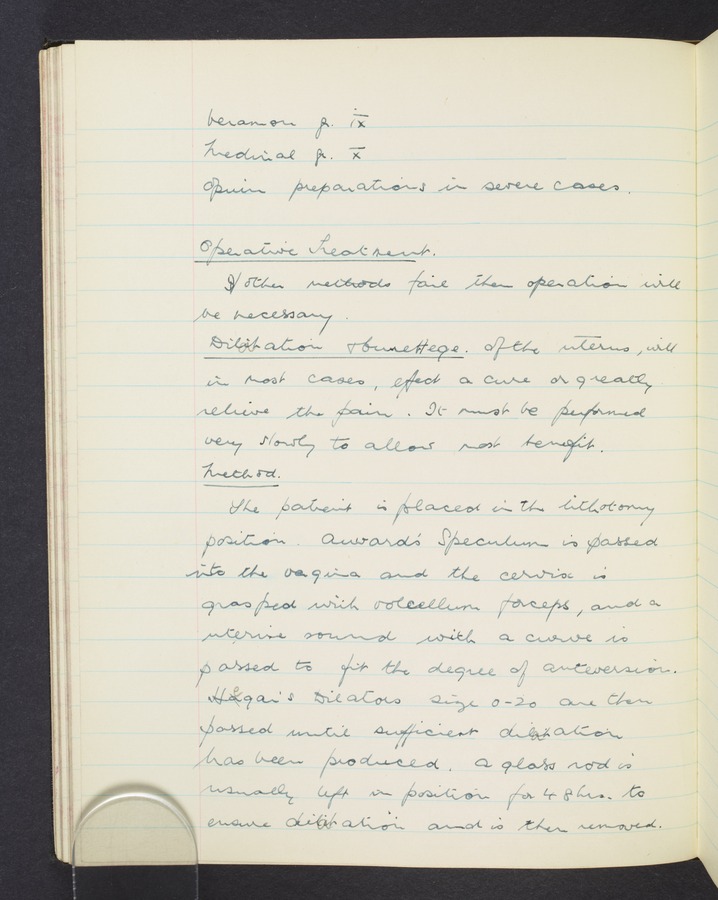 Veramon gr. ix
Medinal gr. x
Opium preparations in severe cases.
Operative Treatment.
If other methods fail then operation will
be necessary.
Dilatation of the uterus, will
in most cases, effect a cure or greatly
relieve the pain. It must be performed
very slowly to allow most benefit.
Method.
The patient is placed in the lithotomy
position. Auvard's Speculum is passed
into the vagina and the cervix is
grasped with volcellum forceps, and a
uterine sound with a curve is
passed to fit the degree of anteversion.
Hegar's Dilators size 0-20 are then
passed until sufficient dilatation
has been produced. A glass rod is
usually left in position for 48 hrs. to
ensure dilatation and is then removed.